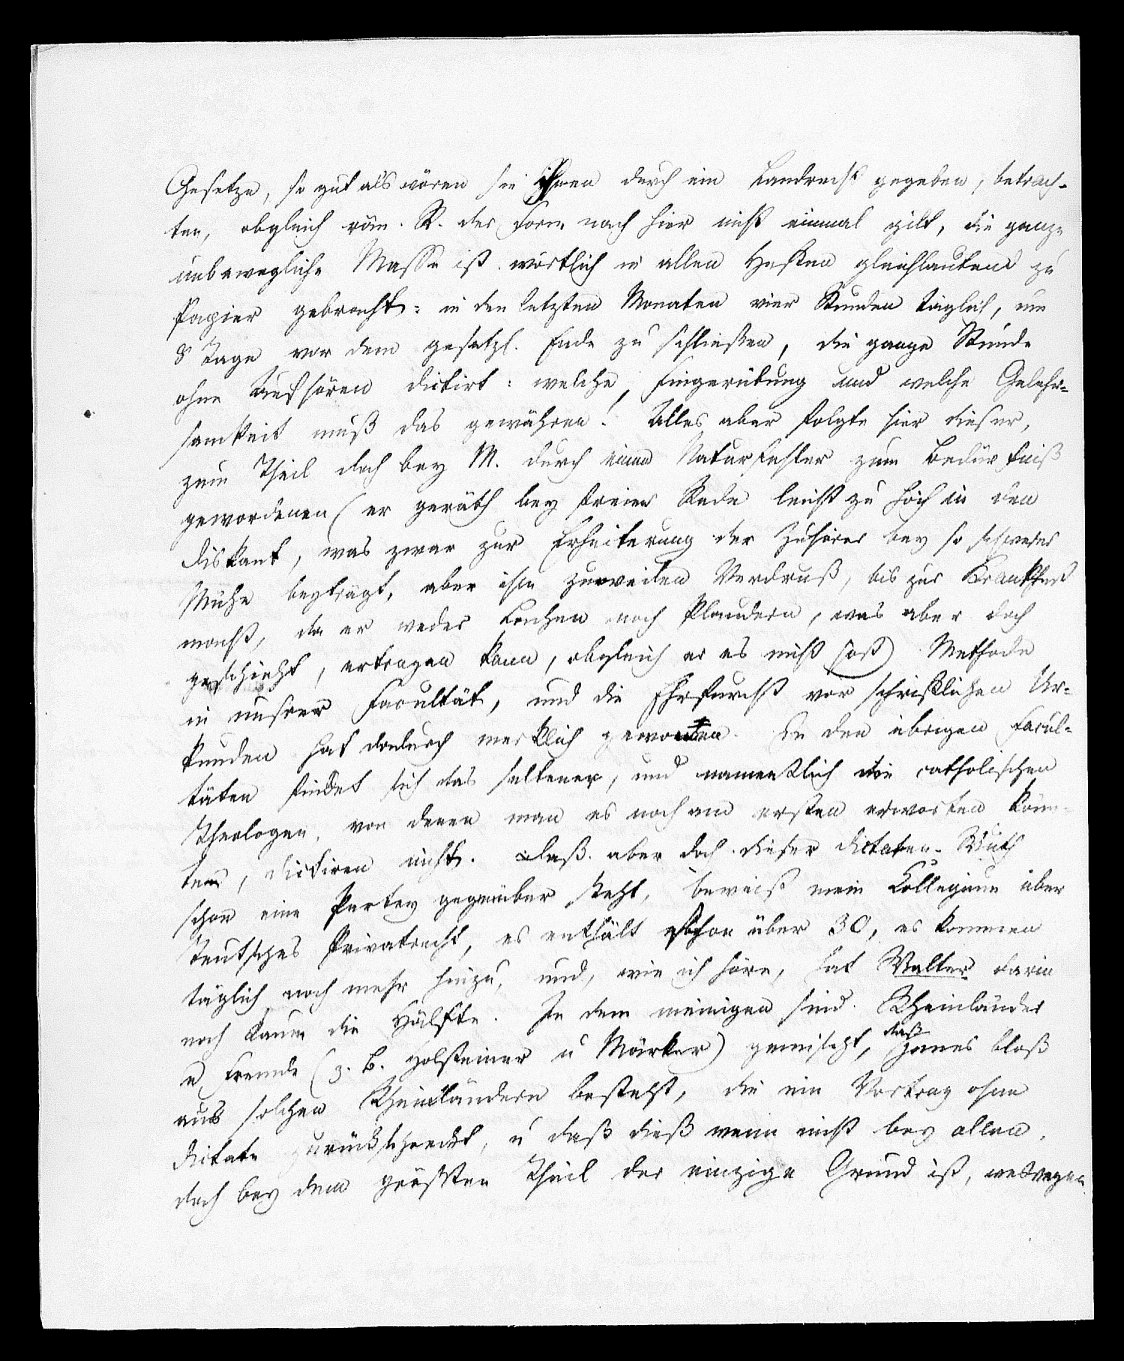 Gesetze, so gut als wären sie ihnen durch ein Landrecht gegeben, betrach-
ten, obgleich röm. R. der Form nach hier nicht einmal gilt, die ganze
unbewegliche Masse ist wörtlich in allen Heften gleichlautend zu
Papier gebracht: in den letzten Monaten vier Stunden täglich, um
8 Tage vor dem gesetzl. Ende zu schließen, die ganze Stunde
ohne Aufhören dictirt: welche Fingerübung und welche Gelehr-
samkeit muß das gewähren! Alles aber folgte hier dieser,
zum Theil doch bey M. durch einen Naturfehler zum Bedürfniß
gewordenen (er geräth bey freier Rede leicht zu hoch in den
Diskant, was zwar zur Erheiterung der Zuhörer bey so schwerer
Mühe beyträgt, aber ihm zuweilen Verdruß, bis zur Krankheit
macht, da er weder Lachen noch Plaudern, was aber doch
geschieht, ertragen kann, obgleich er es nicht hört) Methode
in unsrer Facultät, und die Ehrfurcht vor schriftlichen Ur-
kunden hat dadurch merklich gewonnen. In den übrigen Facul-
täten findet sich das seltener, und namentlich die catholischen
Theologen, von denen man es noch am ersten erwarten könn-
ten, dictiren nicht. Daß aber doch dieser Dictaten-Wuth
schon eine Partey gegenüber steht, beweist mein Collegium über
Teutsches Privatrecht, es enthält schon über 30, es kommen
täglich noch mehr hinzu, und, wie ich höre, hat Walter darin
noch kaum die Hälfte. In dem meinigen sind Rheinländer
u Fremde (z. B. Holsteiner u Märker) gemischt, daß jenes bloß
aus solchen Rheinländern besteht, die ein Vortrag ohne
Dictate zurückschreckt, u daß dieß wenn nicht bey allen,
doch bey dem größten Theil der einzige Grund ist, weswegen